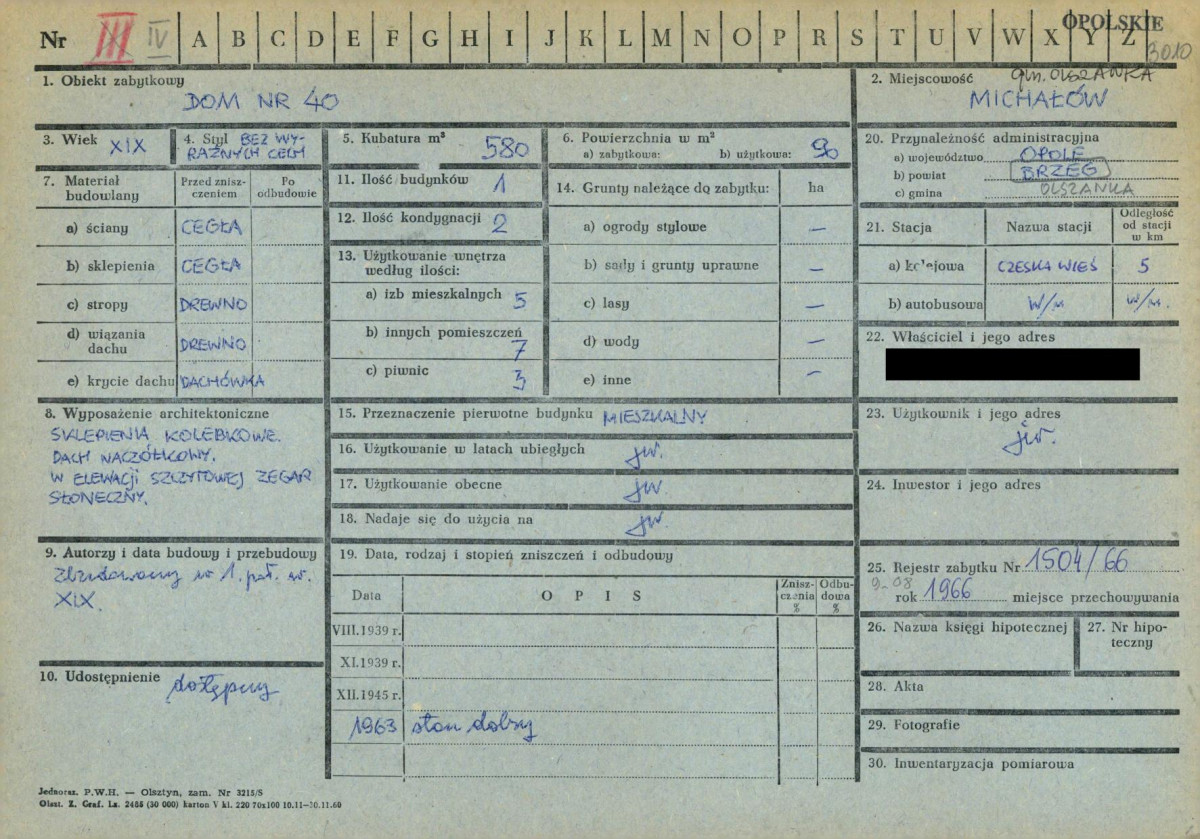 Nr III IV A B C D E F G H I J K L M N O P R S T U V W X Y Z
OPOLSKIE
3010
1. Obiekt zabytkowy
DOM NR 40
2. Miejscowość gm. OLSZANKA
MICHAŁÓW
3. Wiek XIX
4. Styl BEZ WY-
RAŹNYCH CECH
5. Kubatura m³ 580
6. Powierzchnia w m²
a) zabytkowa: b) użytkowa: 90
7. Materiał budowlany
Przed znisz-
czeniem
Po
odbudowie
a) ściany CEGŁA
b) sklepienia CEGŁA
c) stropy DREWNO
d) wiązania
dachu DREWNO
e) krycie dachu DACHÓWKA
8. Wyposażenie architektoniczne
SKLEPIENIA KOLEBKOWE.
DACH NACZÓŁKOWY.
W ELEWACJI SZCZYTOWEJ ZEGAR
SŁONECZNY.
9. Autorzy i data budowy i przebudowy
Zbudowany w 1. poł. w.
XIX.
10. Udostępnienie dostępny
11. Ilość budynków 1
12. Ilość kondygnacji 2
13. Użytkowanie wnętrza
według ilości:
a) izb mieszkalnych 5
b) innych pomieszczeń
7
c) piwnic 3
14. Grunty należące do zabytku: ha
a) ogrody stylowe —
b) sady i grunty uprawne —
c) lasy —
d) wody —
e) inne —
15. Przeznaczenie pierwotne budynku MIESZKALNY
16. Użytkowanie w latach ubiegłych jw.
17. Użytkowanie obecne jw
18. Nadaje się do użycia na jw.
19. Data, rodzaj i stopień zniszczeń i odbudowy
Data
OPIS
Znisz-
czenia
%
Odbu-
dowa
%
VIII.1939 r.
XI.1939 r.
XII.1945 r.
1963 stan dobry
20. Przynależność administracyjna
a) województwo OPOLE
b) powiat BRZEG
c) gmina OLSZANKA
21. Stacja
Nazwa stacji
Odległość
od stacji
w km
a) kolejowa CZESKA WIEŚ 5
b) autobusowa w/m w/m.
22. Właściciel i jego adres
23. Użytkownik i jego adres
jw.
24. Inwestor i jego adres
25. Rejestr zabytku Nr 1504/66
9-08
rok 1966 miejsce przechowywania
26. Nazwa księgi hipotecznej
27. Nr hipo-
teczny
28. Akta
29. Fotografie
30. Inwentaryzacja pomiarowa
Jednoraz. P.W.H. — Olsztyn, zam. Nr 3215/S
Olszt. Z. Graf. Lz. 2486 (30 000) karton V kl. 220 70x100 10.11—30.11.60